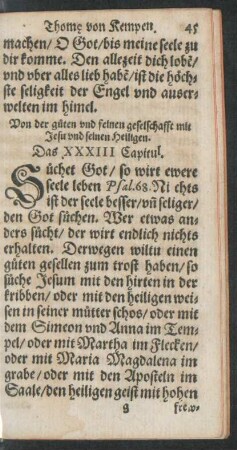 Thome von Kempen. 45
machen/ O Got/ bis meine seele zu
dir komme. Den allezeit dich lobē/
vnd vber alles lieb habē/ ist die höch-
ste seligkeit der Engel vnd auser-
welten im himel.
Von der güten vnd seinen geselschafft mit
Jesu vnd seinen Heiligen.
Das XXXIII Capitul.
Süchet Got/ so wirt ewere
seele leben Psal. 68. Ni chts
ist der seele besser/ vñ seliger/
den Got süchen. Wer etwas an-
ders sücht/ der wirt endlich nichts
erhalten. Derwegen wiltu einen
güten gesellen zum trost haben/ so
süche Jesum mit den hirten in der
kribben/ oder mit den heiligen wei-
sen in seiner mütter schos/ oder mit
dem Simeon vnd Anna im Tem-
pel/ oder mit Martha im Flecken/
oder mit Maria Magdalena im
grabe/ oder mit den Aposteln im
Saale/ den heiligen geist mit hohen
g